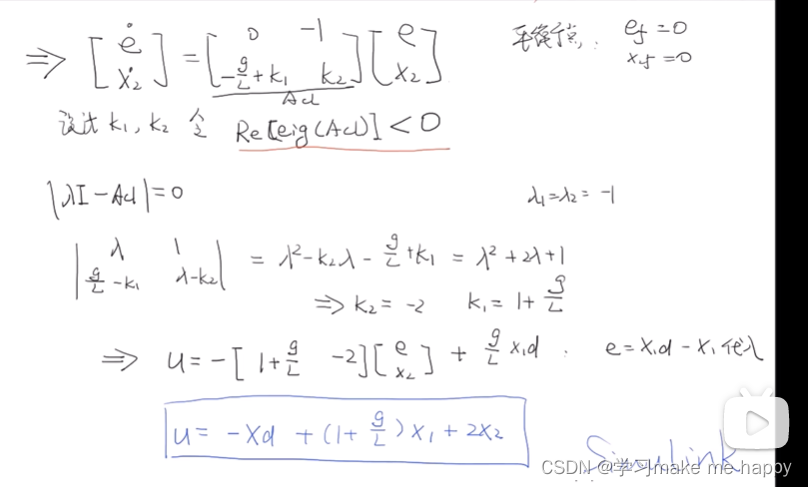 ⇒ [ė ẋ₂] = [0 -1 -g/L+k₁ k₂] [e x₂] 平衡点: e_f=0
Acl x₂f=0
设计 k₁, k₂ 令 Re[eig(Acl)] < 0
|λI-Acl|=0 λ₁=λ₂=-1
|λ 1 g/L-k₁ λ-k₂| = λ²-k₂λ-g/L+k₁ = λ²+2λ+1
⇒ k₂=-2 k₁=1+g/L
⇒ u=-[1+g/L -2][e x₂] + g/L x₁d. e=x₁d-x₁代入
u= -xd +(1+g/L)x₁+2x₂
Simulink
CSDN @学习make me happy